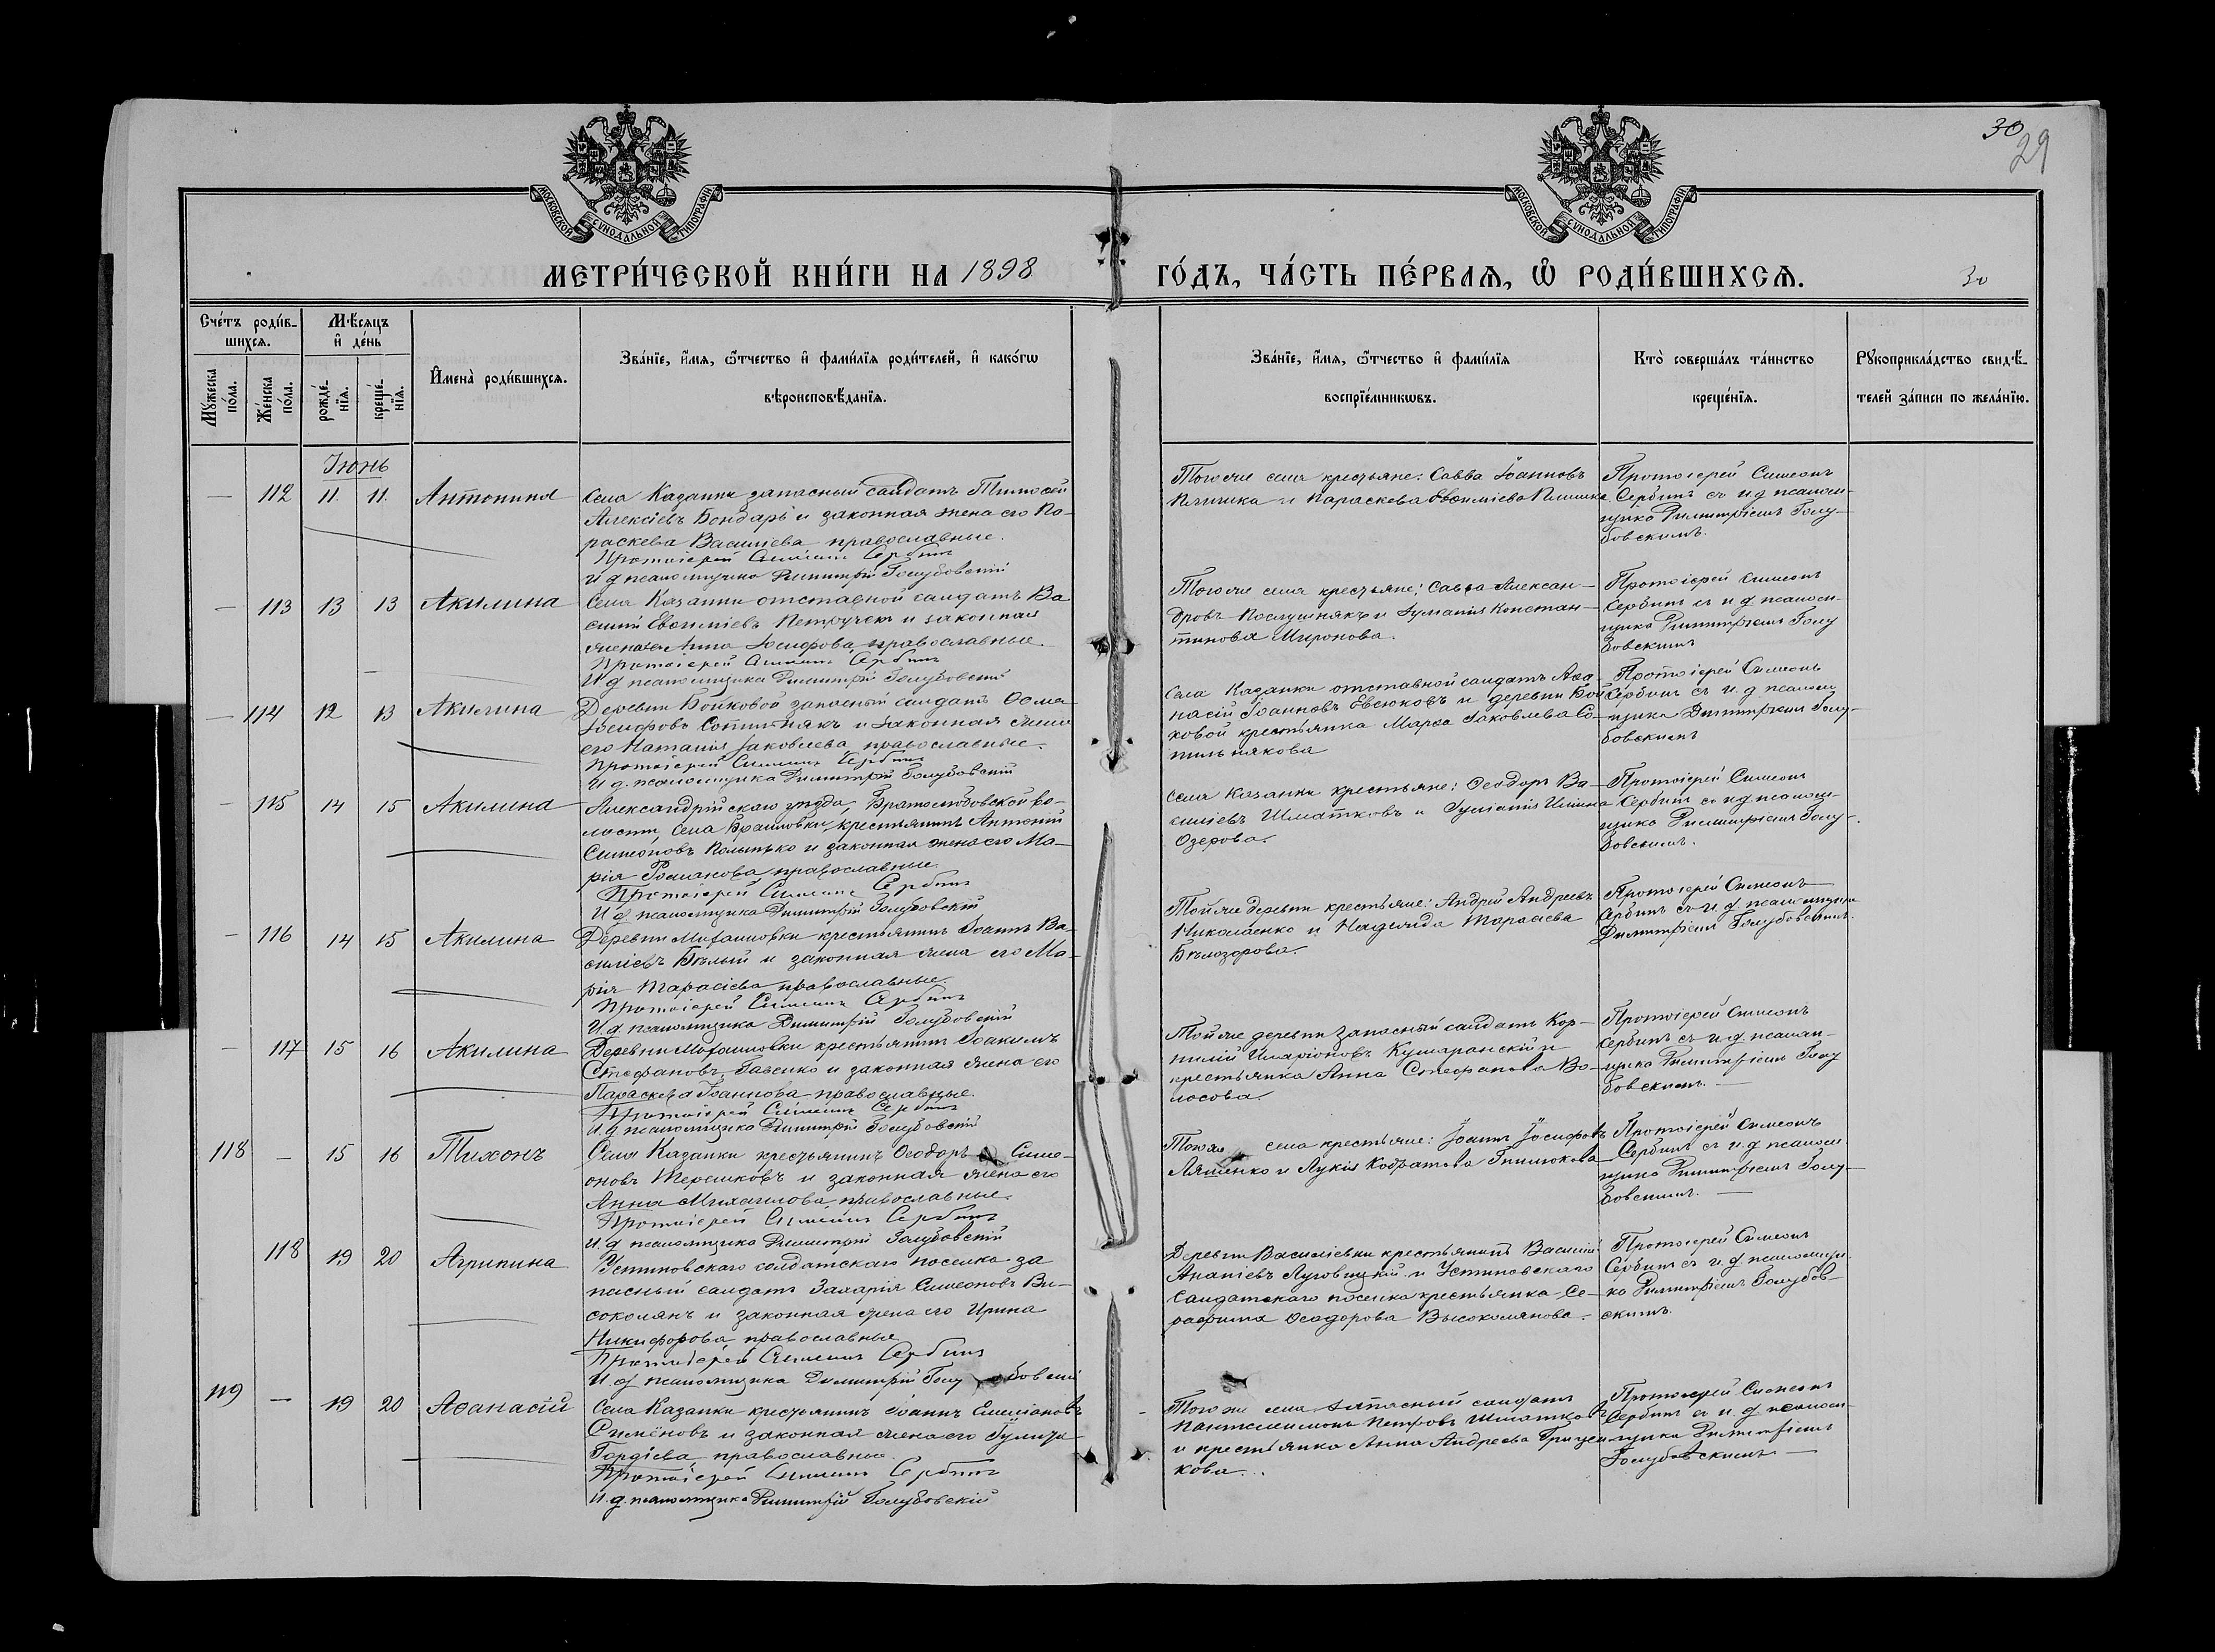 30
29
МОСКОВСКОЙ СѴНОДАЛЬНОЙ ТИПОГРАФІИ
МОСКОВСКОЙ СѴНОДАЛЬНОЙ ТИПОГРАФІИ
МЕТРИ́ЧЕСКОЙ КНИ́ГИ НА 1898
ГО́ДЪ, ЧА́СТЬ ПЕ́РВАѦ, Ѡ РОДИ́ВШИХСѦ.
30
Сче́тъ роди́в-
шихсѧ.
Мѣ́сяцъ
и де́нь
Мꙋ́жеска
по́ла.
Же́нска
по́ла.
рожде́-
нїѧ.
креще́-
нїѧ.
Имена̀ роди́вшихсѧ.
Зва́нїе, и́мѧ, ѻ҆́тчество и фами́лїѧ роди́телей, и како́гѡ
вѣроисповѣ́данїѧ.
Зва́нїе, и́мѧ, ѻ҆́тчество и фами́лїѧ
воспрїе́мникѡвъ.
Кто̀ соверша́лъ та́инство
креще́нїѧ.
Рꙋкоприкла́дство свидѣ́-
телей за́писи по жела́нїю.
Іюнь
— 112 11. 11. Антонина
Села Казанки запасный солдатъ Тимофей
Алексіевъ Бондарь и законная жена его Па-
раскева Василіева православные.
Протоіерей Симеонъ Сербинъ
И д псаломщика Димитрій Голубовскій
Того же села крестьяне: Савва Іоанновъ
и Параскева Евѳиміева
Протоіерей Симеонъ
Сербинъ съ и д псалом-
щика Димитріемъ Голу-
бовскимъ.
— 113 13 13 Акилина
Села Казанки отставной солдатъ Ва
силій Евѳиміевъ и законная
жена его Анна Іосифова, православные.
Протоіерей Симеонъ Сербинъ
И д псаломщика Димитрій Голубовскій
Того же села крестьяне: Савва Алексан-
дровъ Послушнякъ и Іуліанія Констан-
тинова Миронова.
Протоіерей Симеонъ
Сербинъ съ и д. псалом-
щика Димитріемъ Голу
бовскимъ
— 114 12 13 Акилина
Деревни Бойковой запасный солдатъ Ѳома
Іосифовъ и законная жена
его Наталія Іаковлева, православные.
Протоіерей Симеонъ Сербинъ
И д. псаломщика Димитрій Голубовскій
Села Казанки отставной солдатъ Аѳа-
насій Іоанновъ Евсюковъ и деревни Бой
ковой крестьянка Марѳа Іаковлева Со-
тильнякова
Протоіерей Симеонъ
Сербинъ съ и. д. псалом
щика Димитріемъ Голу-
бовскимъ
— 115 14 15 Акилина
Александрійскаго уѣзда, Братолюбовской во-
лости, села крестьянинъ Антоній
Симеоновъ и законная жена его Ма-
рія Романова, православные
Протоіерей Симеонъ Сербинъ
И д. псаломщика Димитрій Голубовскій
Села Казанки крестьяне: Ѳеодоръ Ва-
силіевъ Шматковъ и Іуліанія Ильина
Озерова.
Протоіерей Симеонъ
Сербинъ съ и д псалом-
щика Димитріемъ Голу-
бовскимъ.
— 116 14 15 Акилина
Деревни Михайловки крестьянинъ Іоаннъ Ва-
силіевъ Бѣлый и законная жена его Ма-
рія Тарасіева православные.
Протоіерей Симеонъ Сербинъ
И. д псаломщика Димитрій Голубовскій
Той же деревни крестьяне: Андрей Андреевъ
Николаенко и Надежда Тарасіева
Бѣлозорова.
Протоіерей Симеонъ
Сербинъ съ и д псаломщика
Димитріемъ Голубовскимъ.
— 117 15 16 Акилина
Деревни Михайловки крестьянинъ Іоакимъ
Стефановъ и законная жена его
Параскева Іоаннова православные.
Протоіерей Симеонъ Сербинъ
И. д псаломщика Димитрій Голубовскій
Той же деревни запасный солдатъ Кор-
нилій Иларіоновъ и
крестьянка Анна Стефанова Во-
лосова.
Протоіерей Симеонъ
Сербинъ съ и д. псалом-
щика Димитріемъ Голу
бовскимъ. —
118 — 15 16 Тихонъ
Села Казанки крестьянинъ Ѳеодоръ Симе-
оновъ Терешковъ и законная жена его
Анна Михаилова, православные.
Протоіерей Симеонъ Сербинъ
И. д псаломщика Димитрій Голубовскій
Того же села крестьяне: Іоаннъ Іосифовъ
Ляшенко и Лукія Кодратова
Протоіерей Симеонъ
Сербинъ съ и. д псалом
щика Димитріемъ Голу-
бовскимъ. —
118 19 20 Агрипина
Устиновскаго солдатскаго поселка за
пасный солдатъ Захарія Симеоновъ Вы-
соколянъ и законная жена его Ирина
Никифорова, православные
Протоіерей Симеонъ Сербинъ
И д псаломщика Димитрій Голубовскій
Деревни Василіевки крестьянинъ Василій
Ананіевъ Луговицкій и Устиновскаго
Солдатскаго поселка крестьянка Се-
рафима Ѳеодорова Высоколянова.
Протоіерей Симеонъ
Сербинъ съ и. д псаломщи
ка Димитріемъ Голубов-
скимъ.
119 — 19 20 Аѳанасій
Села Казанки крестьянинъ Іоаннъ Емеліановъ
Сименовъ и законная жена его Гулита
Гордіева, православные.
Протоіерей Симеонъ Сербинъ
И. д. псаломщика Димитрій Голубовскій
Того же села запасный солдатъ
Пантелеимонъ Петровъ Шматковъ
и крестьянка Анна Андреева Грицен
кова.
Протоіерей Симеонъ
Сербинъ съ и. д псалом-
щика Димитріемъ
Голубовскимъ —